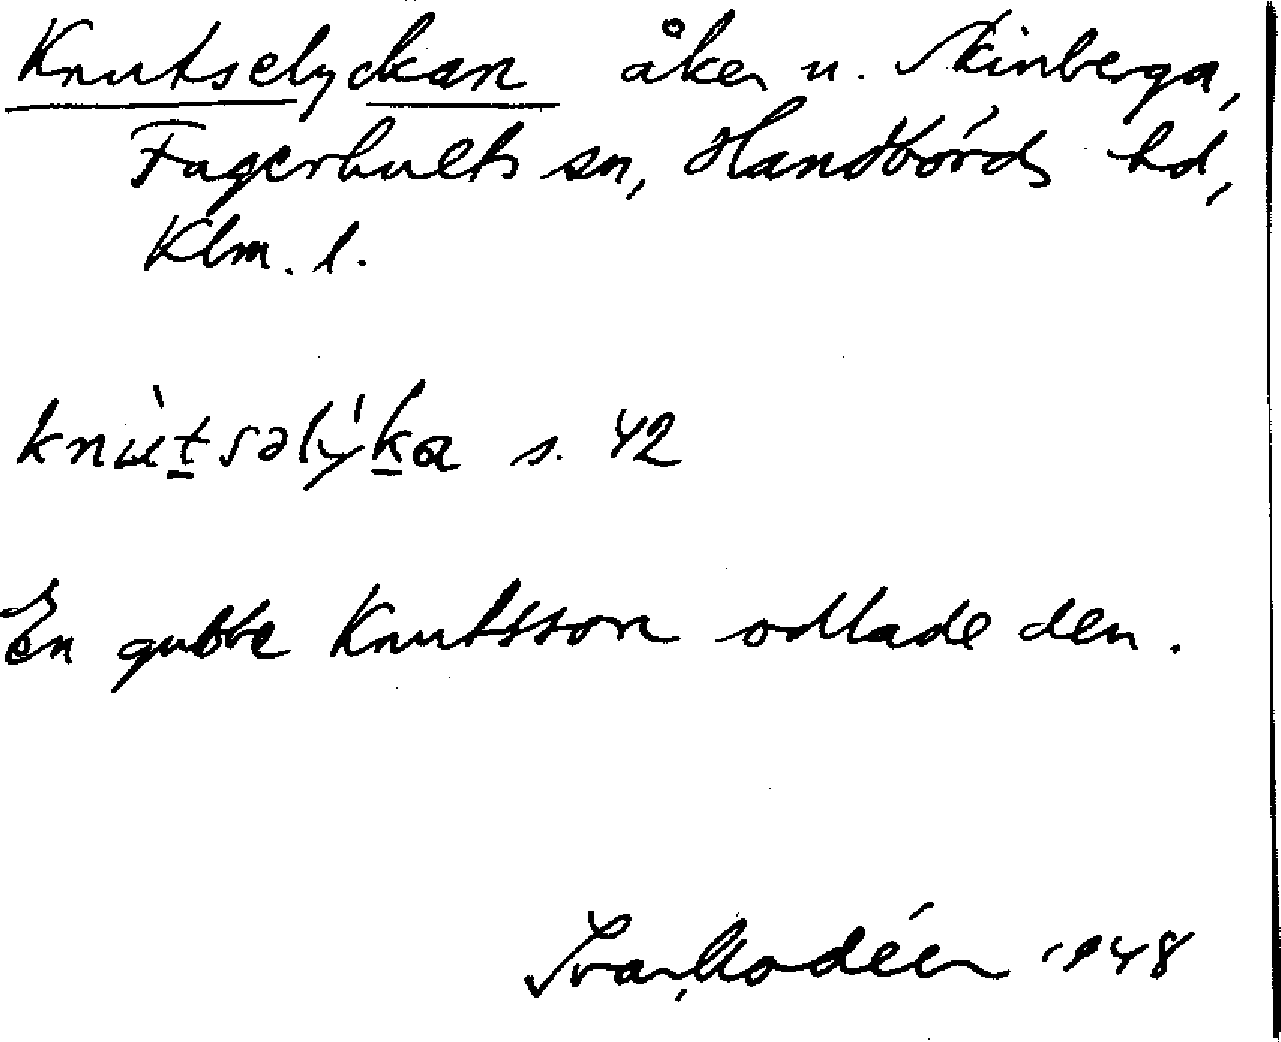 Knutselyckan åker u. Skinberga,
Fagerhults sn, Handbörds hd,
Klm. l.
knùt̠səlýk̠a s. 42
En gubbe Knutsson odlade den.
Ivar Modéer 1948